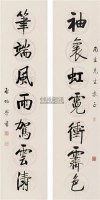 袖裏虹霓衝霽色
筆端風雨駕雲濤